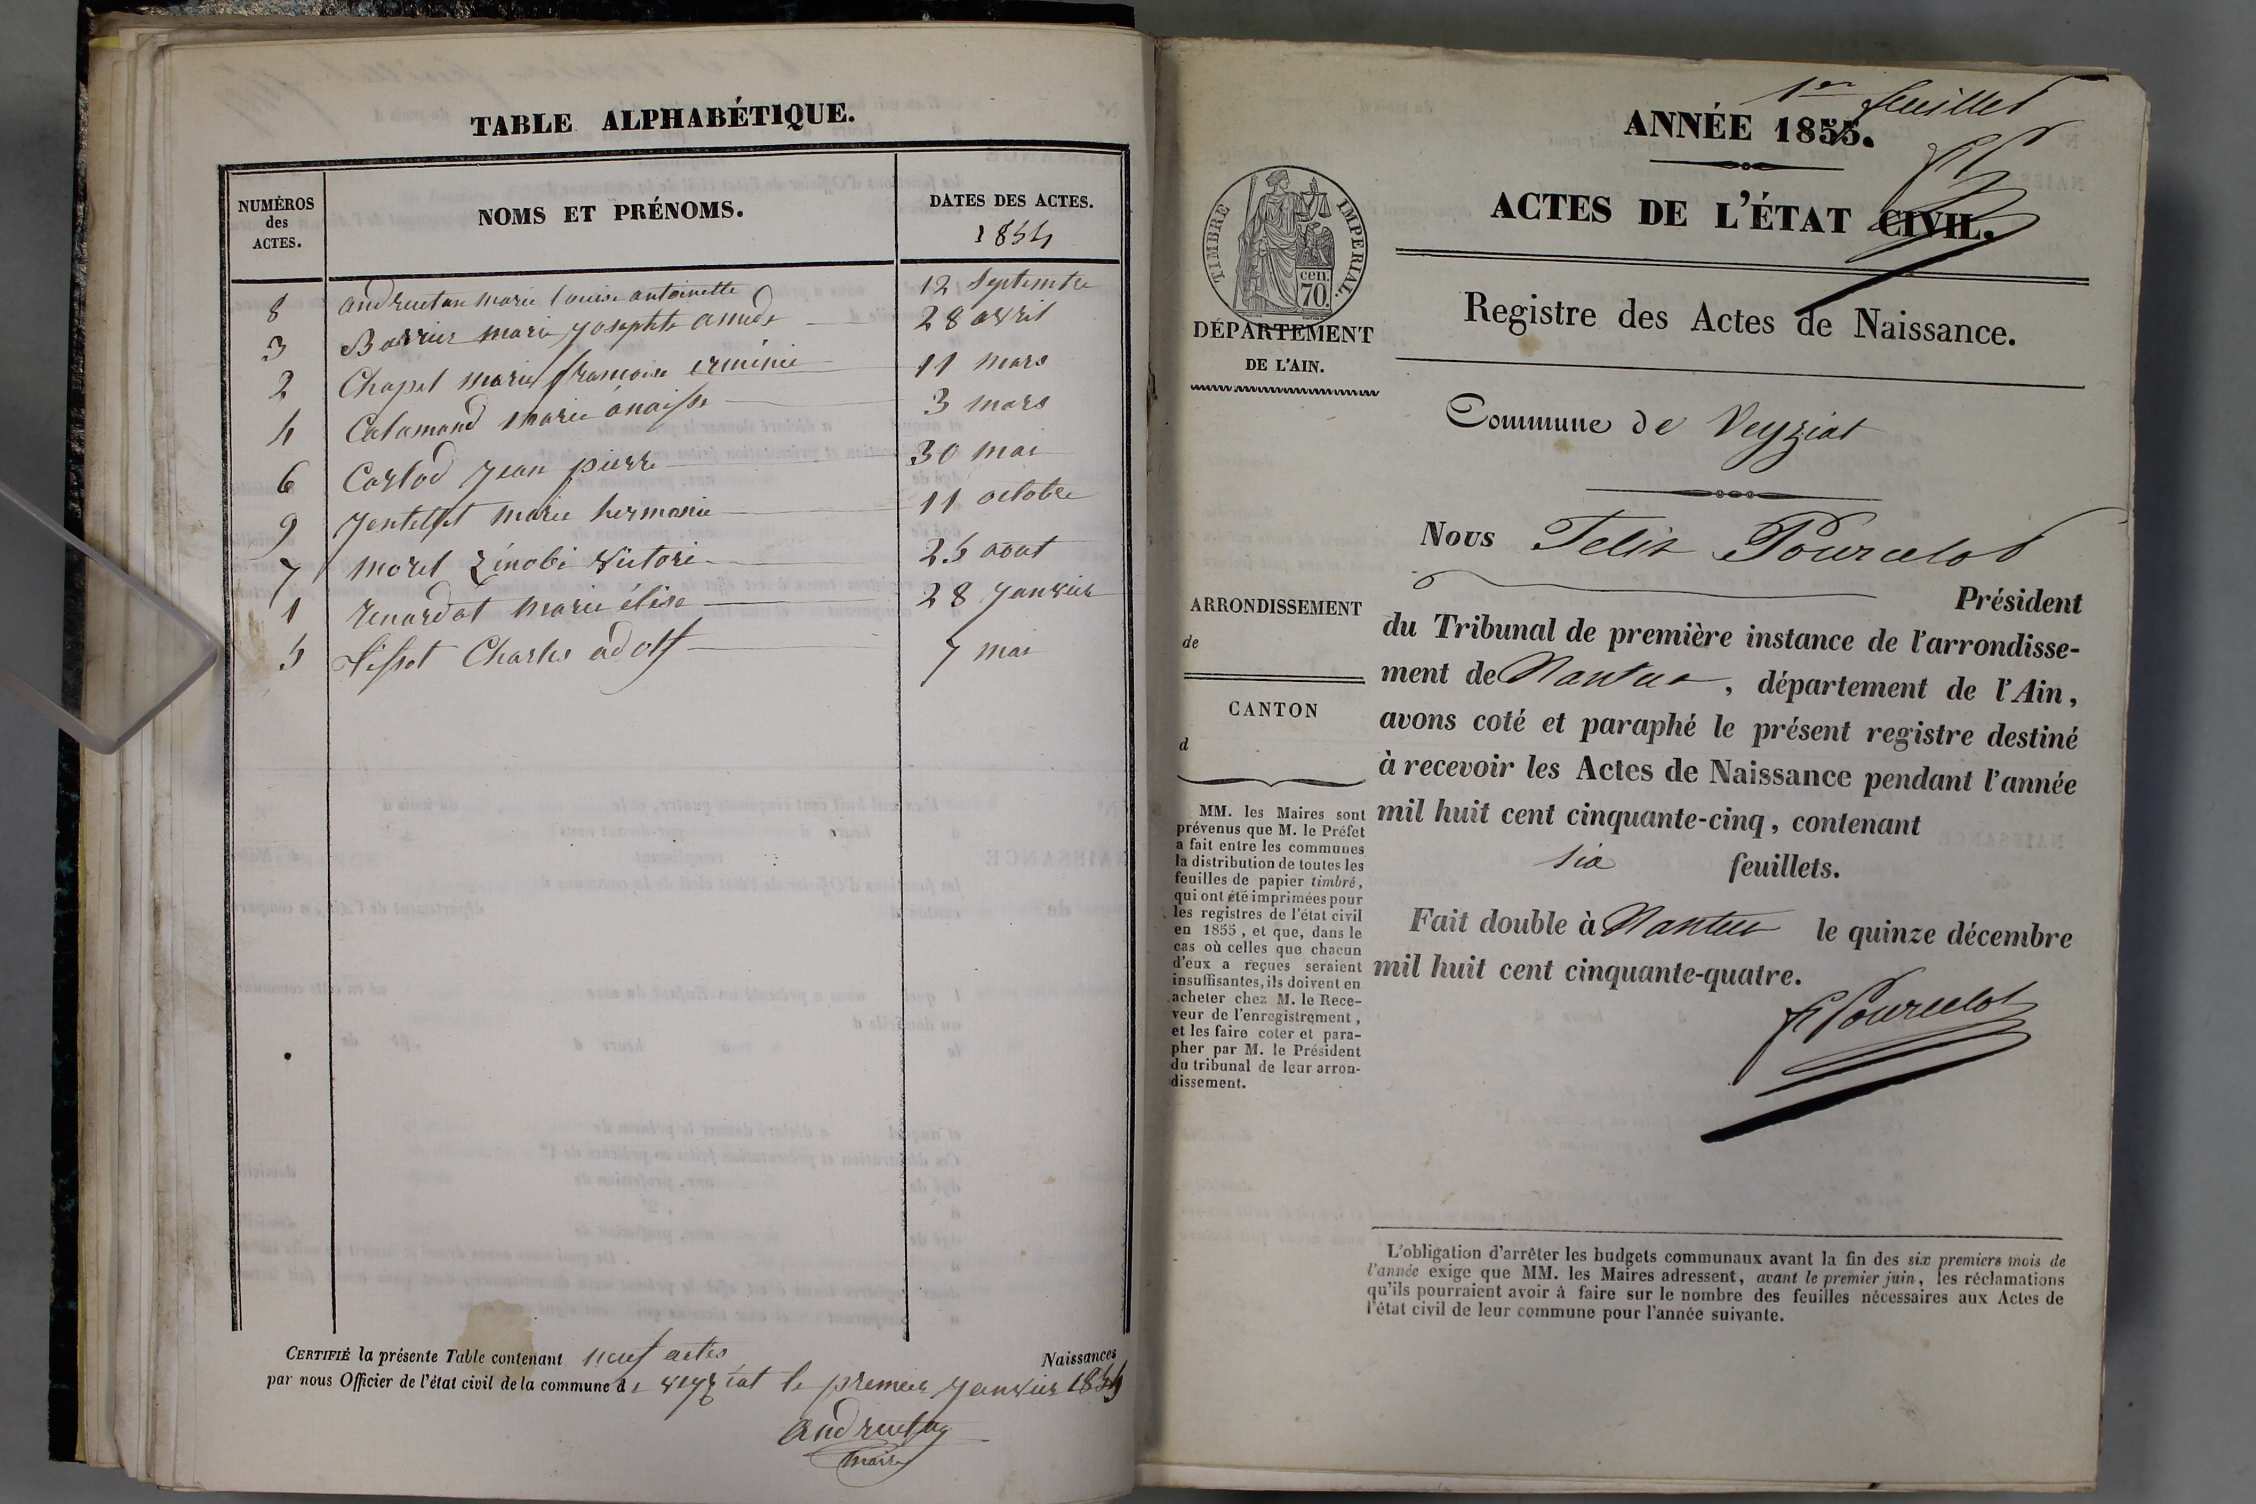 TABLE ALPHABÉTIQUE.
NUMÉROS
des
ACTES.
NOMS ET PRÉNOMS.
DATES DES ACTES.
1854
8 andruetan marie louise antoinette 12 Septembre
3 Barrier marie josephte 28 avril
2 Chapel marie francoise erminie 11 mars
4 Calamand marie anaisse 3 mars
6 Carlod jean pierre 30 mai
9 marie hermanie 11 octobre
7 morel Zénobi victori 25 aout
1 renardat marie élise 28 janvier
5 Tissot Charles adolf 7 mai
CERTIFIÉ la présente Table contenant neuf actes Naissances
par nous Officier de l'état civil de la commune de veyziat le premier janvier 1855
maire
1er feuillet
ANNÉE 1855.
ACTES DE L'ÉTAT CIVIL.
TIMBRE IMPERIAL.
cen.
70.
DÉPARTEMENT
DE L'AIN.
Registre des Actes de Naissance.
Commune de Veyziat
Nous Felix Pourcelot
Président
du Tribunal de première instance de l'arrondisse-
ment de Nantua, département de l'Ain,
avons coté et paraphé le présent registre destiné
à recevoir les Actes de Naissance pendant l'année
mil huit cent cinquante-cinq, contenant
six feuillets.
Fait double à Nantua le quinze décembre
mil huit cent cinquante-quatre.
F Pourcelot
ARRONDISSEMENT
de
CANTON
d
MM. les Maires sont
prévenus que M. le Préfet
a fait entre les communes
la distribution de toutes les
feuilles de papier timbré,
qui ont été imprimées pour
les registres de l'état civil
en 1855, et que, dans le
cas où celles que chacun
d'eux a reçues seraient
insuffisantes, ils doivent en
acheter chez M. le Rece-
veur de l'enregistrement,
et les faire coter et para-
pher par M. le Président
du tribunal de leur arron-
dissement.
L'obligation d'arrêter les budgets communaux avant la fin des six premiers mois de
l'année exige que MM. les Maires adressent, avant le premier juin, les réclamations
qu'ils pourraient avoir à faire sur le nombre des feuilles nécessaires aux Actes de
l'état civil de leur commune pour l'année suivante.